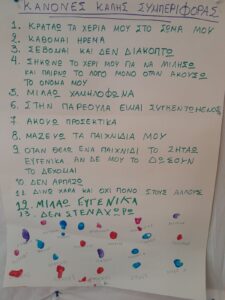 ΚΑΝΟΝΕΣ ΚΑΛΗΣ ΣΥΜΠΕΡΙΦΟΡΑΣ
1. ΚΡΑΤΑΩ ΤΑ ΧΕΡΙΑ ΜΟΥ ΣΤΟ ΣΩΜΑ ΜΟΥ
2. ΚΑΘΟΜΑΙ ΗΡΕΜΑ
3. ΣΕΒΟΜΑΙ ΚΑΙ ΔΕΝ ΔΙΑΚΟΠΤΩ
4. ΣΗΚΩΝΩ ΤΟ ΧΕΡΙ ΜΟΥ ΓΙΑ ΝΑ ΜΙΛΗΣΩ
ΚΑΙ ΠΑΙΡΝΩ ΤΟ ΛΟΓΟ ΜΟΝΟ ΟΤΑΝ ΑΚΟΥΣΩ
ΤΟ ΟΝΟΜΑ ΜΟΥ
5. ΜΙΛΑΩ ΧΑΜΗΛΟΦΩΝΑ
6. ΣΤΗΝ ΠΑΡΕΟΥΛΑ ΕΙΜΑΙ ΣΥΓΚΕΝΤΡΩΜΕΝΟΣ
7. ΑΚΟΥΩ ΠΡΟΣΕΚΤΙΚΑ
8. ΜΑΖΕΥΩ ΤΑ ΠΑΙΧΝΙΔΙΑ ΜΟΥ
9. ΟΤΑΝ ΘΕΛΩ ΕΝΑ ΠΑΙΧΝΙΔΙ ΤΟ ΖΗΤΑΩ
ΕΥΓΕΝΙΚΑ ΑΝ ΔΕ ΜΟΥ ΤΟ ΔΩΣΟΥΝ
ΤΟ ΔΕΧΟΜΑΙ
10. ΔΕΝ ΑΡΠΑΖΩ
11. ΔΙΝΩ ΧΑΡΑ ΚΑΙ ΟΧΙ ΠΟΝΟ ΣΤΟΥΣ ΑΛΛΟΥΣ
12. ΜΙΛΑΩ ΕΥΓΕΝΙΚΑ
13. ΔΕΝ ΣΤΕΝΑΧΩΡΩ